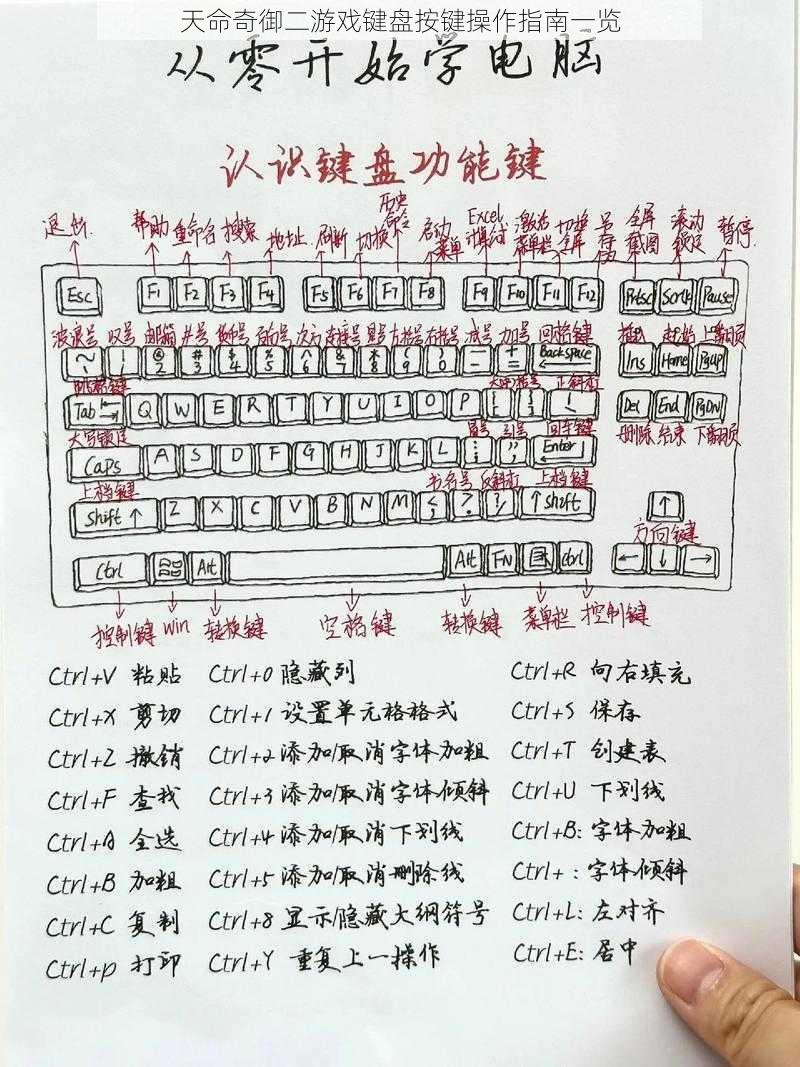 天命奇御二游戏键盘按键操作指南一览
从零开始学电脑
认识键盘功能键
退出 帮助 重命名 搜索 地址 刷新 切换 历史命令 启动菜单 Excel计算公式 激活菜单栏 切换全屏 另存为 全屏截图 滚动锁定 暂停
Esc F1 F2 F3 F4 F5 F6 F7 F8 F9 F10 F11 F12 Prtsc Scrlk Pause
波浪号 叹号 邮箱 井号 货币号 百分号 次方 连接号 星号 左括号 右括号 减号 加号 回格键 插入 起始 上翻页
~ ! @ 2 # 3 $ 4 % 5 ^ 6 & 7 * 8 ( 9 ) 0 - + = Backspace Ins Home PgUp
制表键 大中括号 正斜杠
Tab Q W E R T Y U I O P Del End PgDn
大写锁定 冒号 引号 回车键 删除 结束 下翻页
Caps A S D F G H J K L Enter
上档键 书名号 反斜杠 上档键
Shift ↑ Z X C V B N M ↑ Shift ↑
方向键
Ctrl Alt Alt FN Ctrl ← ↓ →
控制键 Win 转换键 空格键 转换键 菜单栏 控制键
Ctrl+V 粘贴 Ctrl+0 隐藏列 Ctrl+R 向右填充
Ctrl+X 剪切 Ctrl+1 设置单元格格式 Ctrl+S 保存
Ctrl+Z 撤销 Ctrl+2 添加/取消字体加粗 Ctrl+T 创建表
Ctrl+F 查找 Ctrl+3 添加/取消字体倾斜 Ctrl+U 下划线
Ctrl+A 全选 Ctrl+4 添加/取消下划线 Ctrl+B: 字体加粗
Ctrl+B 加粗 Ctrl+5 添加/取消删除线 Ctrl+ : 字体倾斜
Ctrl+C 复制 Ctrl+8 显示/隐藏大纲符号 Ctrl+L: 左对齐
Ctrl+P 打印 Ctrl+Y 重复上一操作 Ctrl+E: 居中